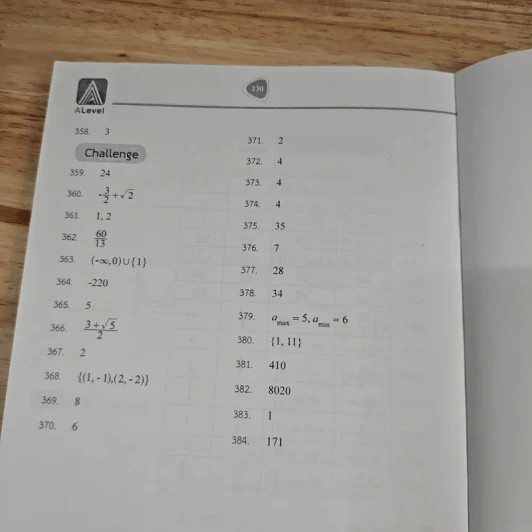 330
ALevel
358. 3
Challenge
359. 24
360. -3/2 + √2
361. 1, 2
362. 60/13
363. (-∞, 0) ∪ {1}
364. -220
365. 5
366. 3 + √5 / 2
367. 2
368. {(1, - 1),(2, - 2)}
369. 8
370. 6
371. 2
372. 4
373. 4
374. 4
375. 35
376. 7
377. 28
378. 34
379. a max = 5, a min = 6
380. {1, 11}
381. 410
382. 8020
383. 1
384. 171